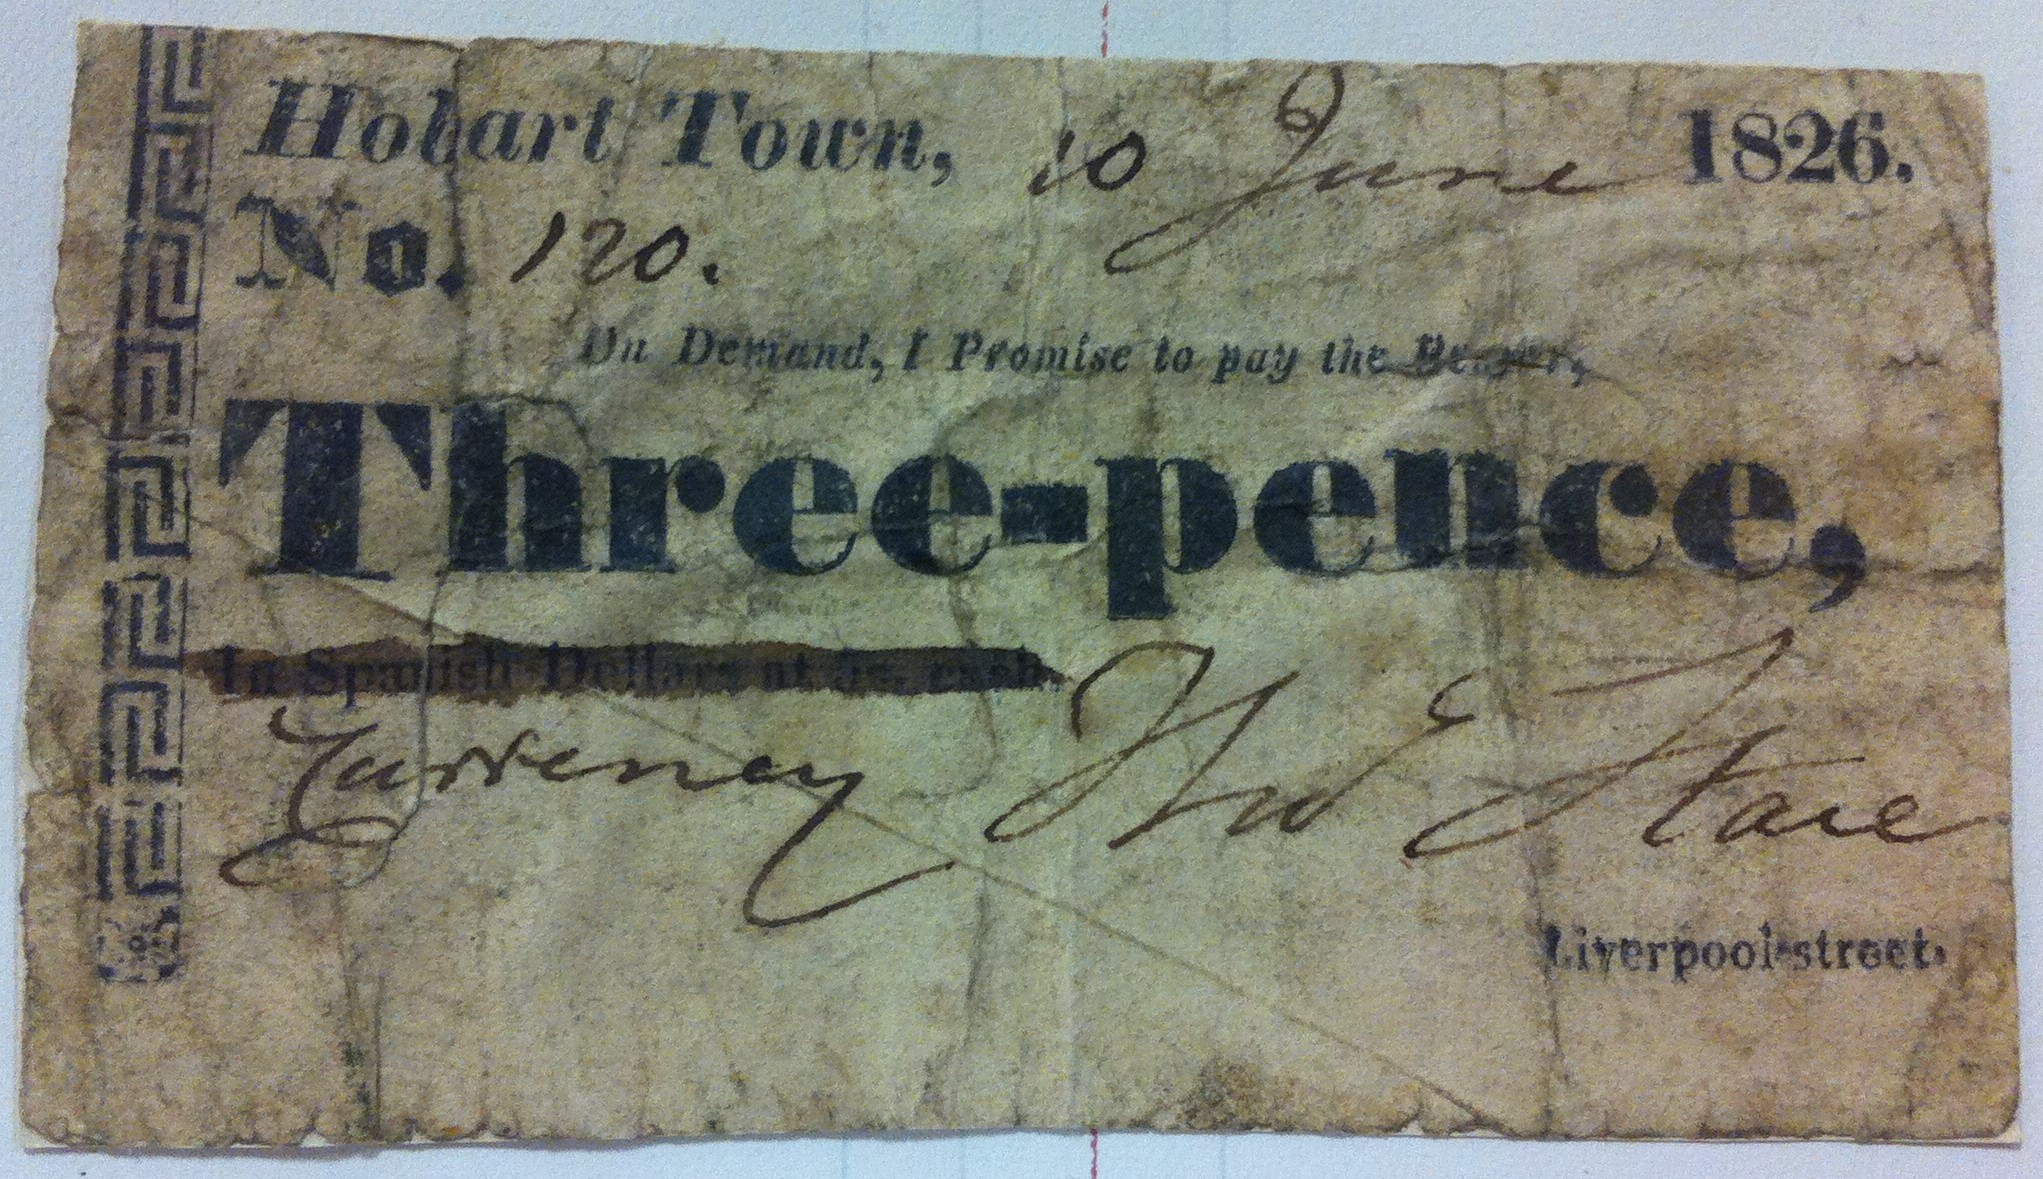 Hobart Town, 10 June 1826.
No. 120.
On Demand, I Promise to pay the Bearer,
Three-pence,
In Spanish Dollars at 5s. each.
Currency Thos Stace
Liverpool-street.